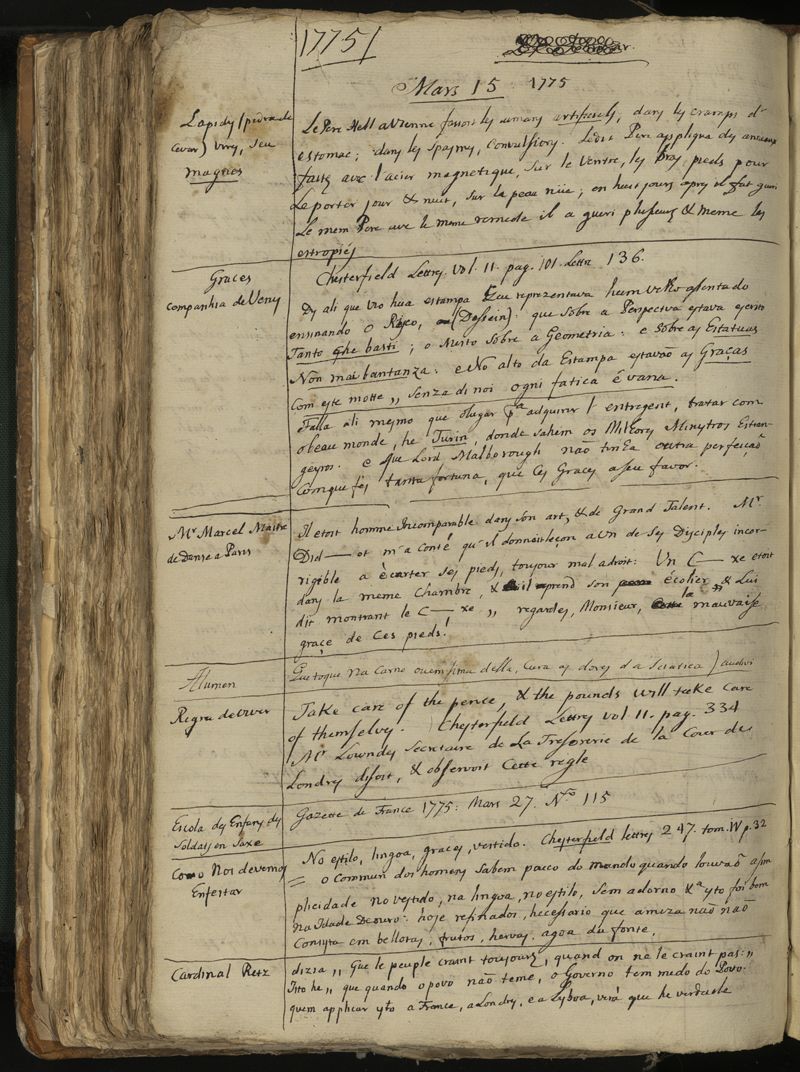 1775/
Mars 15 1775
Lapidy (pedra de
Cevar) very, seu
magnes
Le Pere Hell a Vienne faisoit les aimans artificiels, dans les cramps d'
estomac; dans les spasmes, convulsions. Ledit Pere appliqua des anneaux
faits avec l'acier magnetique, sur le ventre, les bras, pieds pour
Le porter jour & nuit, sur la peau nüe; en huit jours apres il fut gueri
Le mem Pere avec le meme remede il a gueri plusieurs & meme les
estropiés
Graces
Companhia de Veny
Chesterfield Lettres Vol. 11. pag. 101. Lettre 136.
Dis ali que vio hua estampa que reprezentava hum velho asentado
ensinando o Risco, (Dessein): que sobre a Perspectiva estava escrito
Tanto che basti; o mesto sobre a Geometria: e sobre as Estatuas
Non mai bastanza: e No alto da Estampa estavaõ as Graças
Com este motte, senza di noi ogni fatica é vana.
Falla ali mesmo que o lugar pª adquirir l'entregent, tratar com
o beau monde, he Turin, donde sahem os Milhores Ministros Estran-
geyros. e que Lord Malborough não tinha outra perfeiçaõ
Com que fes tanta fortuna, que as Graças a seu favor.
Mr Marcel Maitre
de Danse a Paris
Il etoit homme Incomparable dans son art, & de Grand Talent. Mr
Did—ot m'a Conté qu'il donnoit leçon a un de ses Disciples incor-
rigible a écarter ses pieds, toujour mal adroit: Un C— xe etoit
dans la meme Chambre, & il prend son écolier, & Lui
dit montrant le C— xe „ regardes, Monsieur, la mauvaise
graçe de Ces pieds!
Alumen
Que toque na Carne ou em sima della, Cura as dores da Sciatica)
Regra de viver
Take care of the pence, & the pounds will take care
of themselves. Chesterfield Lettres vol 11. pag. 334
Mr Lowndes Secretaire de La Tresorerie de la Cour de
Londres disoit, & observoit Cette regle
Escola dos Enfans dos
Soldats en Saxe
Gazette de France 1775: Mars 27. No 115
Como Nos devemos
Enfeitar
No estilo, lingoa, graces, vestido. Chesterfield lettres 247. tom. IV p. 32
= O Commun dos homens sabem pouco do mondo quando louvaõ a sim
plicidade no vestido, na lingoa, no estilo, sem adorno &ª isto foi bom
na Idade De ouro: hoje refinados, necessario que a meza naõ
Consista em bellotas, frutos, hervas, agoa da fonte.
Cardinal Retz
dizia „ Que le peuple craint toujours, quand on ne le craint pas: „
Isto he „ que quando o povo naõ teme, o Governo tem medo do Povo.
quem applicar isto a France, a Londres, e a Lisboa, verá que he verdade